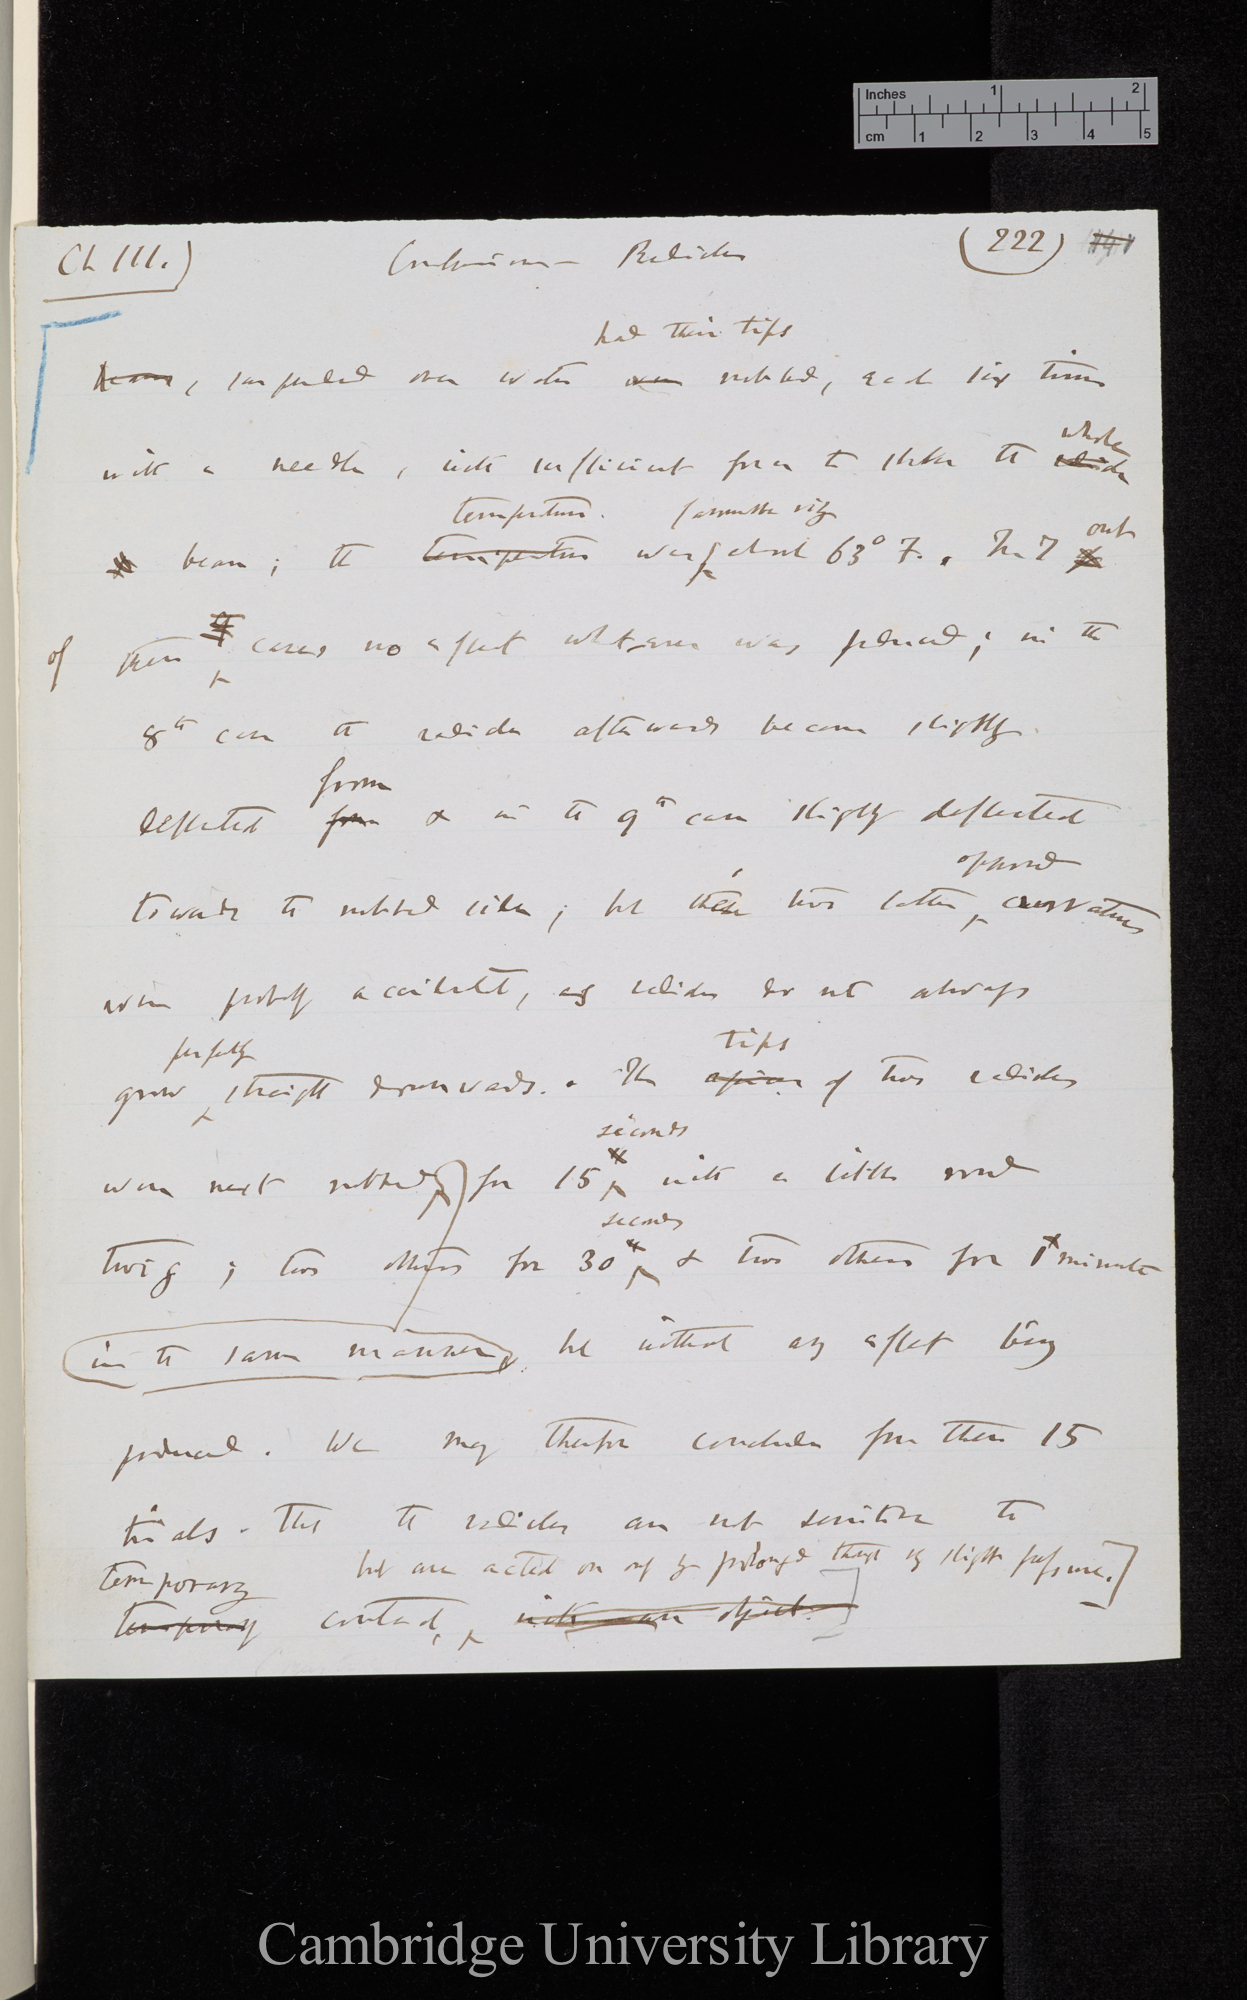 Inches 1 2
cm 1 2 3 4 5
Ch III.) Radicles (222)
had their tips
beans, suspended over water were rubbed, each six times
whole
with a needle, with sufficient force to shake the radicle
temperature. out
bean; the temperature was, about 63° F. In 7
of these 9 cases no effect whatever was produced; in the
8th case the radicle afterwards became slightly
from
deflected from & in the 9th case slightly deflected
opposed
towards the rubbed side; but these two latter curvatures
were probably accidental, as radicles do not always
perfectly tips
grow straight downwards. The apices of two radicles
seconds
were next rubbed for 15 with a little round
seconds
twig; two others for 30 & two others for 1 minute
in the same manner, but without any effect being
produced. We may therefore conclude from these 15
trials that the radicles are not sensitive to
temporary but are acted on only by prolonged though very slight pressure.]
temporary contact, with any object.]
Cambridge University Library